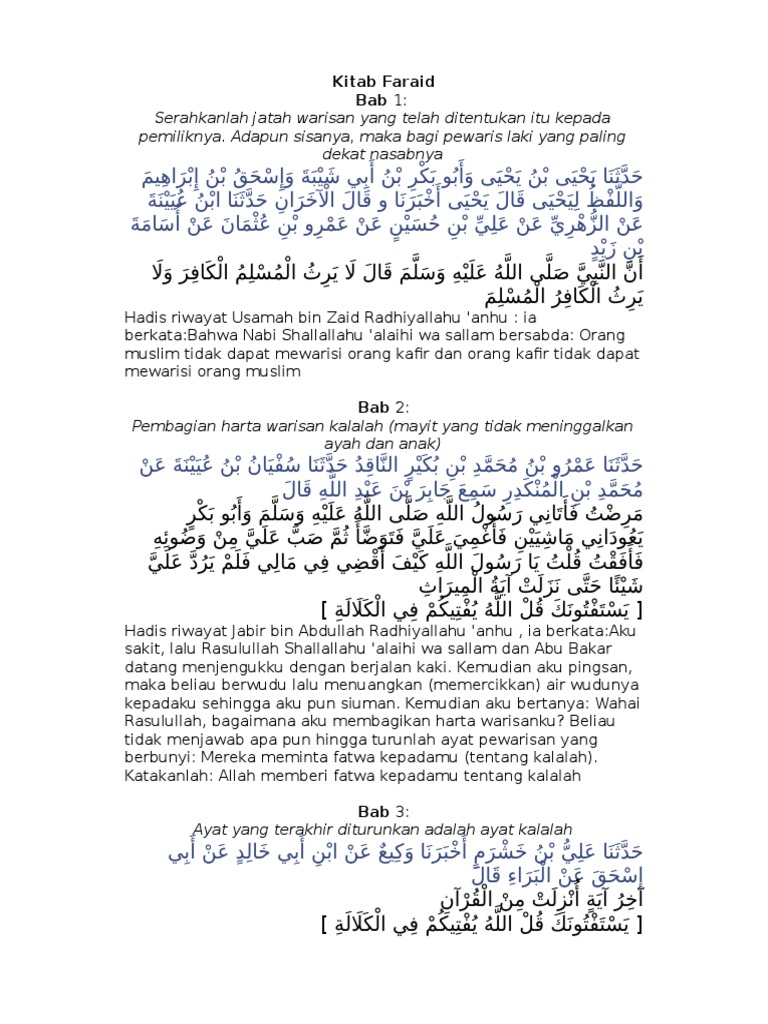 Kitab Faraid
Bab 1:
Serahkanlah jatah warisan yang telah ditentukan itu kepada
pemiliknya. Adapun sisanya, maka bagi pewaris laki yang paling
dekat nasabnya
حَدَّثَنَا يَحْيَى بْنُ يَحْيَى وَأَبُو بَكْرِ بْنُ أَبِي شَيْبَةَ وَإِسْحَقُ بْنُ إِبْرَاهِيمَ
وَاللَّفْظُ لِيَحْيَى قَالَ يَحْيَى أَخْبَرَنَا و قَالَ الْآخَرَانِ حَدَّثَنَا ابْنُ عُيَيْنَةَ
عَنْ الزُّهْرِيِّ عَنْ عَلِيِّ بْنِ حُسَيْنٍ عَنْ عَمْرِو بْنِ عُثْمَانَ عَنْ أُسَامَةَ
بْنِ زَيْدٍ
أَنَّ النَّبِيَّ صَلَّى اللَّهُ عَلَيْهِ وَسَلَّمَ قَالَ لَا يَرِثُ الْمُسْلِمُ الْكَافِرَ وَلَا
يَرِثُ الْكَافِرُ الْمُسْلِمَ
Hadis riwayat Usamah bin Zaid Radhiyallahu 'anhu : ia
berkata:Bahwa Nabi Shallallahu 'alaihi wa sallam bersabda: Orang
muslim tidak dapat mewarisi orang kafir dan orang kafir tidak dapat
mewarisi orang muslim
Bab 2:
Pembagian harta warisan kalalah (mayit yang tidak meninggalkan
ayah dan anak)
حَدَّثَنَا عَمْرُو بْنُ مُحَمَّدِ بْنِ بُكَيْرٍ النَّاقِدُ حَدَّثَنَا سُفْيَانُ بْنُ عُيَيْنَةَ عَنْ
مُحَمَّدِ بْنِ الْمُنْكَدِرِ سَمِعَ جَابِرَ بْنَ عَبْدِ اللَّهِ قَالَ
مَرِضْتُ فَأَتَانِي رَسُولُ اللَّهِ صَلَّى اللَّهُ عَلَيْهِ وَسَلَّمَ وَأَبُو بَكْرٍ
يَعُودَانِي مَاشِيَيْنِ فَأُغْمِيَ عَلَيَّ فَتَوَضَّأَ ثُمَّ صَبَّ عَلَيَّ مِنْ وَضُوئِهِ
فَأَفَقْتُ قُلْتُ يَا رَسُولَ اللَّهِ كَيْفَ أَقْضِي فِي مَالِي فَلَمْ يَرُدَّ عَلَيَّ
شَيْئًا حَتَّى نَزَلَتْ آيَةُ الْمِيرَاثِ
[ يَسْتَفْتُونَكَ قُلْ اللَّهُ يُفْتِيكُمْ فِي الْكَلَالَةِ ]
Hadis riwayat Jabir bin Abdullah Radhiyallahu 'anhu , ia berkata:Aku
sakit, lalu Rasulullah Shallallahu 'alaihi wa sallam dan Abu Bakar
datang menjengukku dengan berjalan kaki. Kemudian aku pingsan,
maka beliau berwudu lalu menuangkan (memercikkan) air wudunya
kepadaku sehingga aku pun siuman. Kemudian aku bertanya: Wahai
Rasulullah, bagaimana aku membagikan harta warisanku? Beliau
tidak menjawab apa pun hingga turunlah ayat pewarisan yang
berbunyi: Mereka meminta fatwa kepadamu (tentang kalalah).
Katakanlah: Allah memberi fatwa kepadamu tentang kalalah
Bab 3:
Ayat yang terakhir diturunkan adalah ayat kalalah
حَدَّثَنَا عَلِيُّ بْنُ خَشْرَمٍ أَخْبَرَنَا وَكِيعٌ عَنْ ابْنِ أَبِي خَالِدٍ عَنْ أَبِي
إِسْحَقَ عَنْ الْبَرَاءِ قَالَ
آخِرُ آيَةٍ أُنْزِلَتْ مِنْ الْقُرْآنِ
[ يَسْتَفْتُونَكَ قُلْ اللَّهُ يُفْتِيكُمْ فِي الْكَلَالَةِ ]